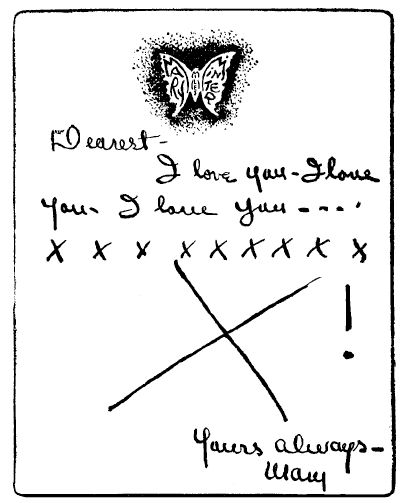 MARY MINTER
Dearest-
I love you-I love
you- I love you - - - .'
X X X X X X X X X
X !
Yours always-
Mary